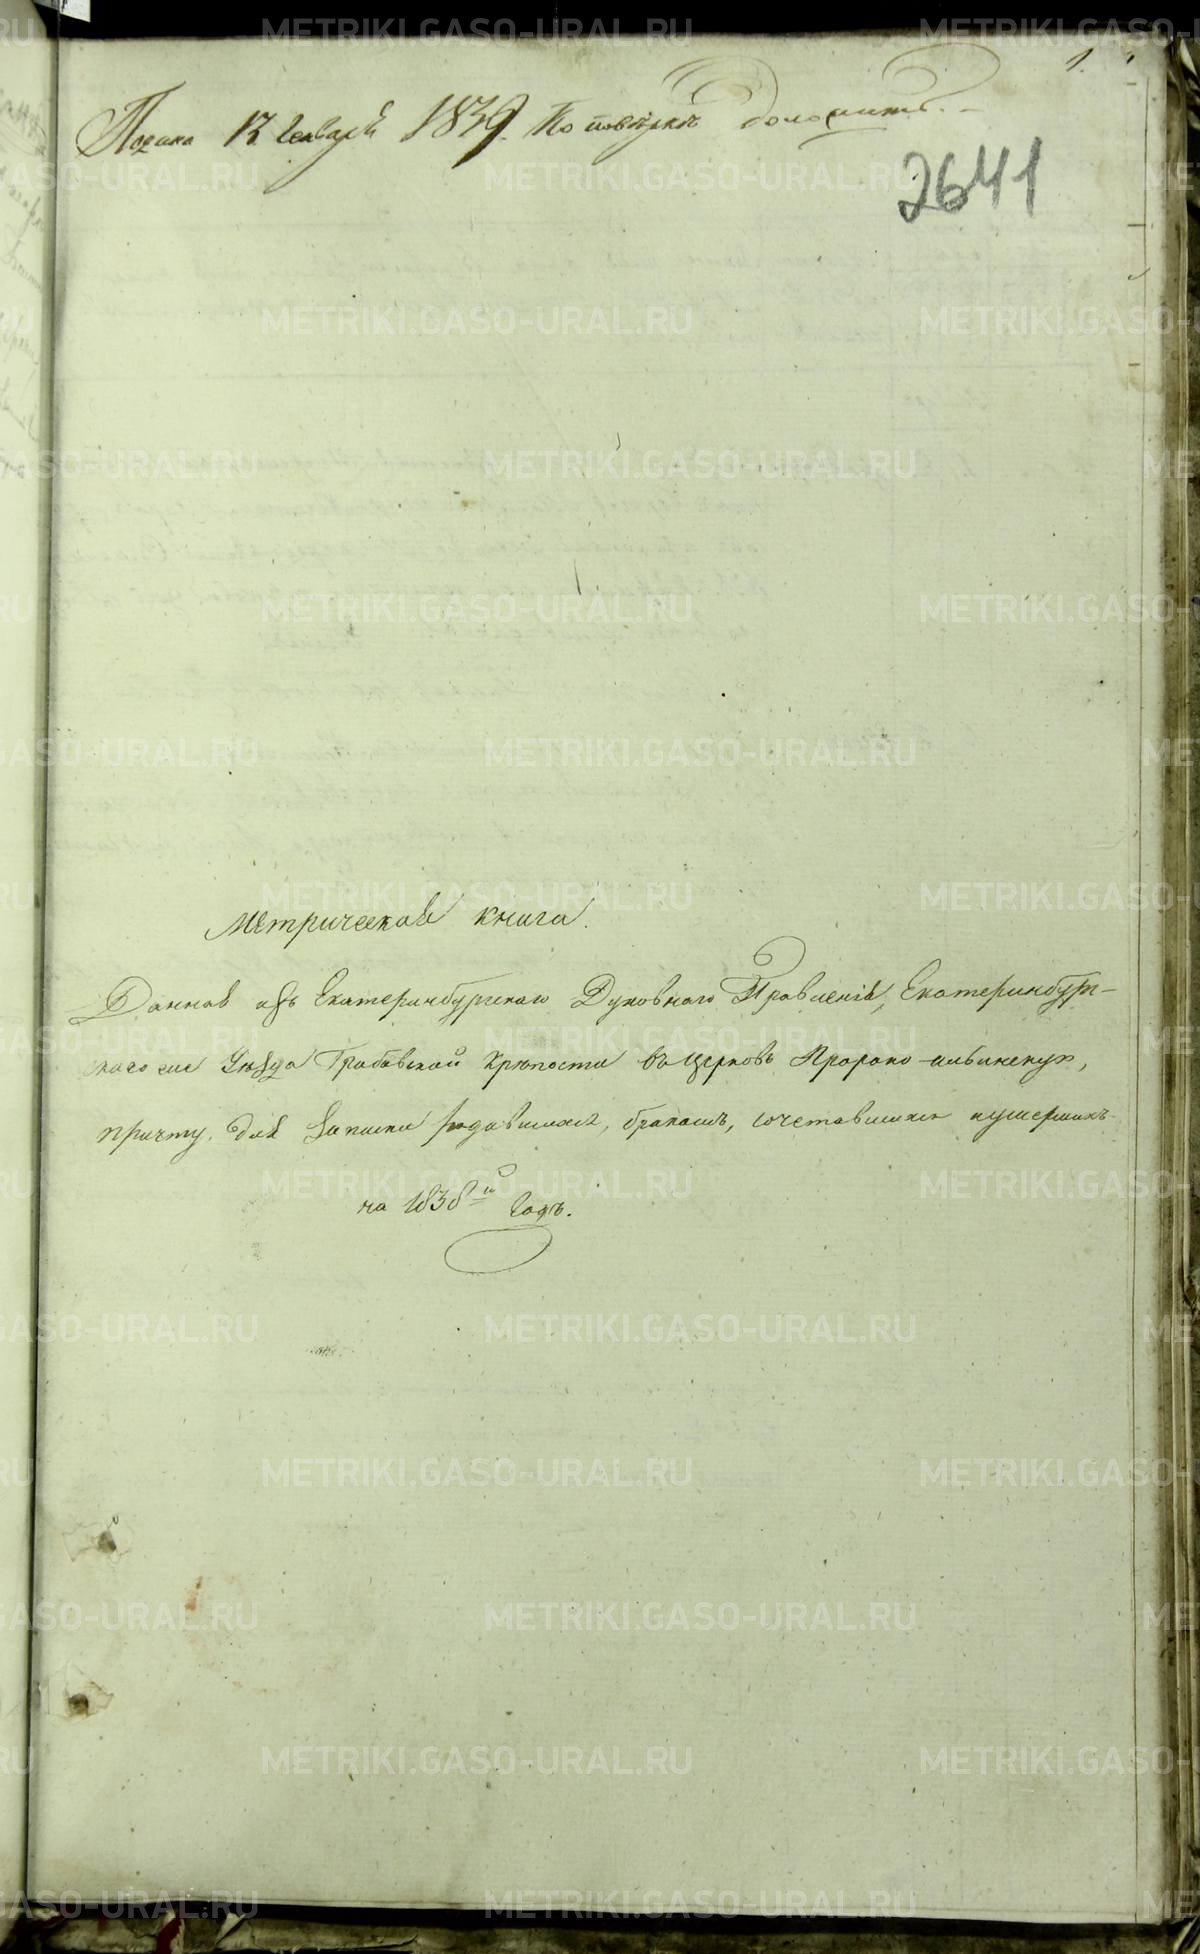 1.
Подана 13 Генваря 1839. По повѣркѣ доложить.
2641
Метрическая книга.
Данная изъ Екатеринбургскаго Духовнаго Правленія, Екатеринбург-
скаго же Уѣзда Грабовской Крѣпости въ церковь Пророко-ильинскую,
причту, для записки родившихся, бракомъ, сочетавшихся и умершихъ
на 1838й Годъ.
METRIKI.GASO-URAL.RU